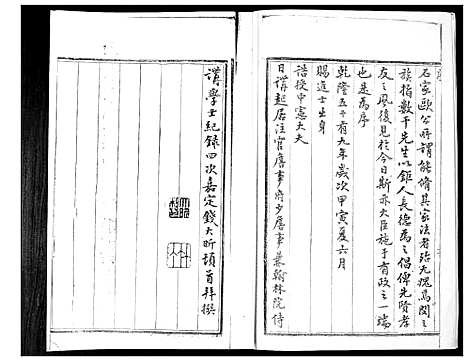 石家歐公所謂能脩其家法者殆无愧焉閔之
族指數千先生以鉅人長德為之倡俾先賢孝
友之風復見於今日斯亦大臣施于有政之一端
也是為序
乾隆五十有九年歲次甲寅夏六月
賜進士出身
誥授中憲大夫
日講起居注官詹事府少詹事兼翰林院侍
講學士紀錄四次嘉定錢大昕頓首拜撰